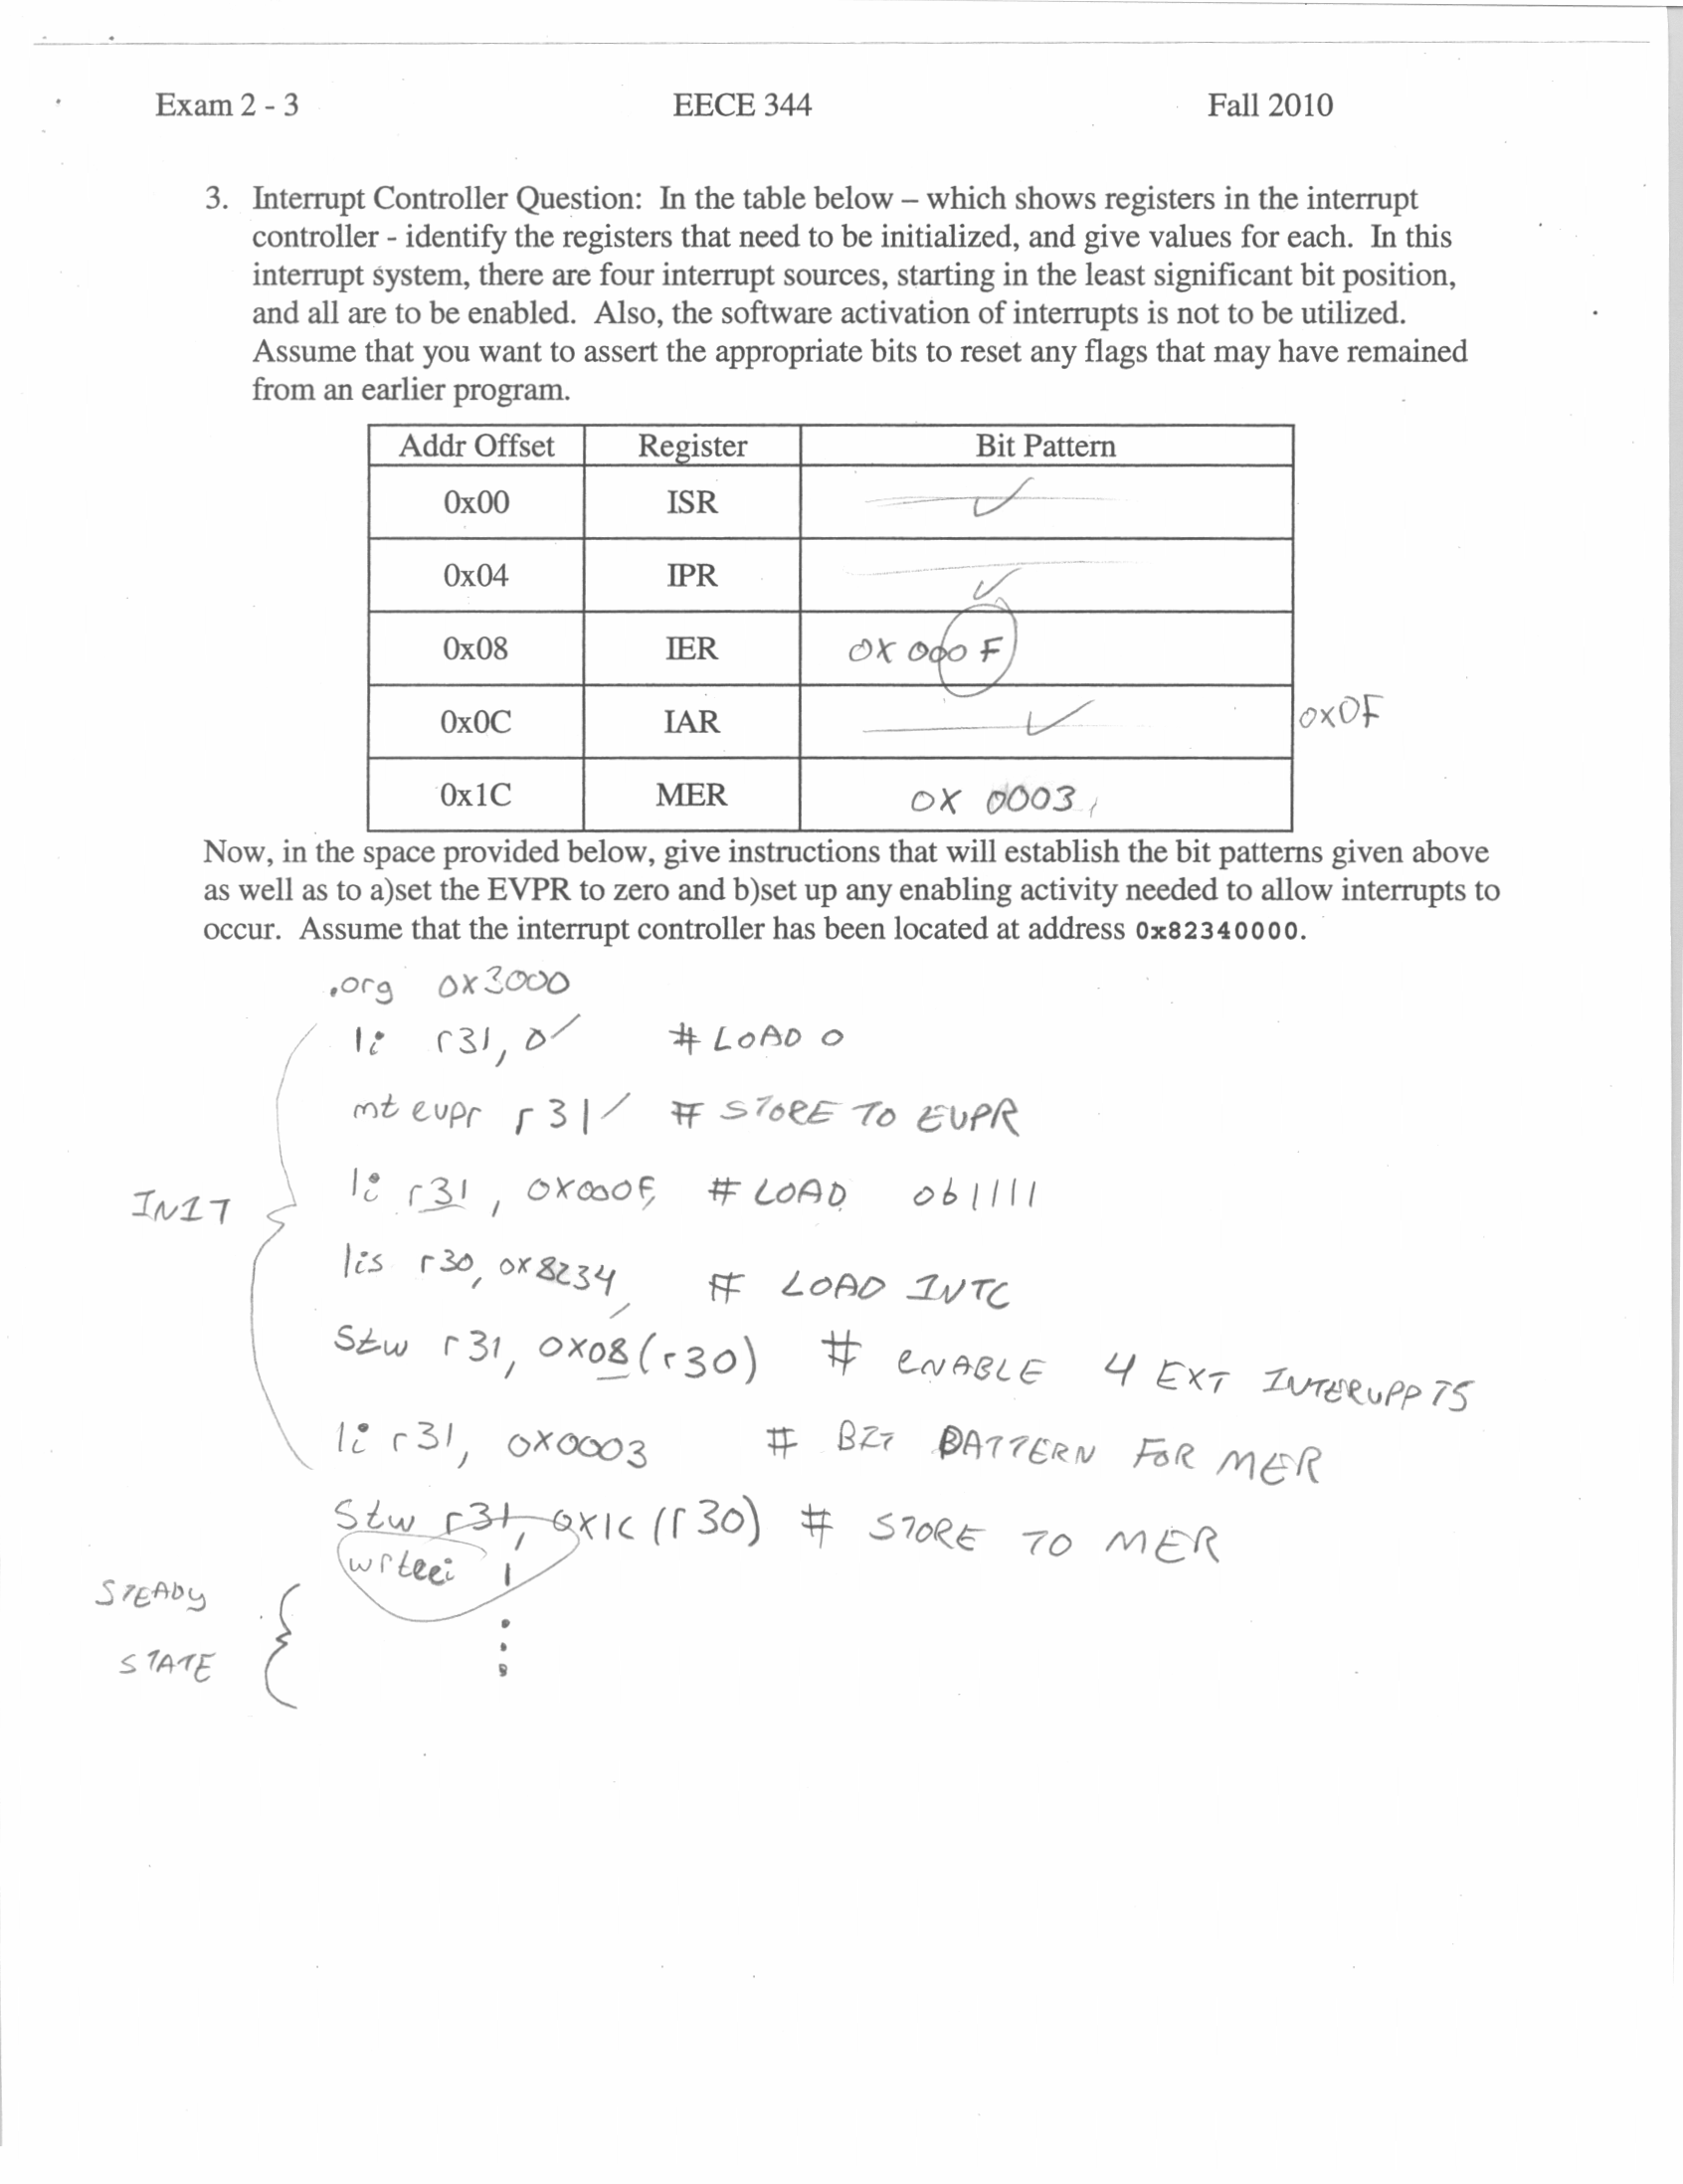 Exam 2 - 3 EECE 344 Fall 2010
3. Interrupt Controller Question: In the table below – which shows registers in the interrupt
controller - identify the registers that need to be initialized, and give values for each. In this
interrupt system, there are four interrupt sources, starting in the least significant bit position,
and all are to be enabled. Also, the software activation of interrupts is not to be utilized.
Assume that you want to assert the appropriate bits to reset any flags that may have remained
from an earlier program.
Addr Offset Register Bit Pattern
0x00 ISR
0x04 IPR
0x08 IER 0x000F
0x0C IAR 0x0F
0x1C MER 0x 0003
Now, in the space provided below, give instructions that will establish the bit patterns given above
as well as to a)set the EVPR to zero and b)set up any enabling activity needed to allow interrupts to
occur. Assume that the interrupt controller has been located at address 0x82340000.
.org 0x3000
li r31, 0 # LOAD 0
mtevpr r31 # STORE TO EVPR
li r31, 0x000F # LOAD 0b1111
INIT
lis r30, 0x8234 # LOAD INTC
Stw r31, 0x08(r30) # ENABLE 4 EXT INTERUPPTS
li r31, 0x0003 # BIT PATTERN FOR MER
Stw r31, 0x1C(r30) # STORE TO MER
wrteei 1
STEADY
STATE